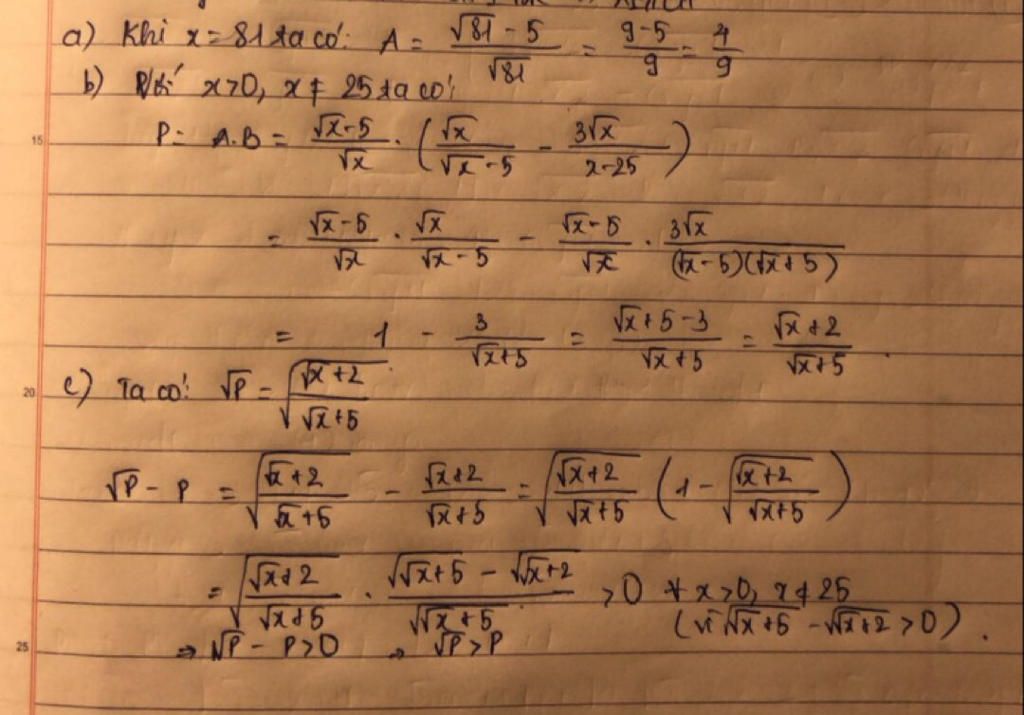 a) Khi x = 81 ta có: A = (√81 - 5)/√81 = (9-5)/9 = 4/9
b) Với x>0, x ≠ 25 ta có:
P = A.B = (√x-5)/√x . (√x/(√x-5) - 3√x/(x-25))
= (√x-5)/√x . √x/(√x-5) - (√x-5)/√x . 3√x/((√x-5)(√x+5))
= 1 - 3/(√x+5) = (√x+5-3)/(√x+5) = (√x+2)/(√x+5).
c) Ta có: √P = √((√x+2)/(√x+5))
√P - P = √((√x+2)/(√x+5)) - (√x+2)/(√x+5) = √((√x+2)/(√x+5)) (1 - √((√x+2)/(√x+5)))
= √((√x+2)/(√x+5)) . (√(√x+5) - √(√x+2))/√(√x+5) > 0 ∀ x>0, x ≠ 25
(vì √(√x+5) - √(√x+2) > 0).
⇒ √P - P > 0 ⇒ √P > P
15
20
25